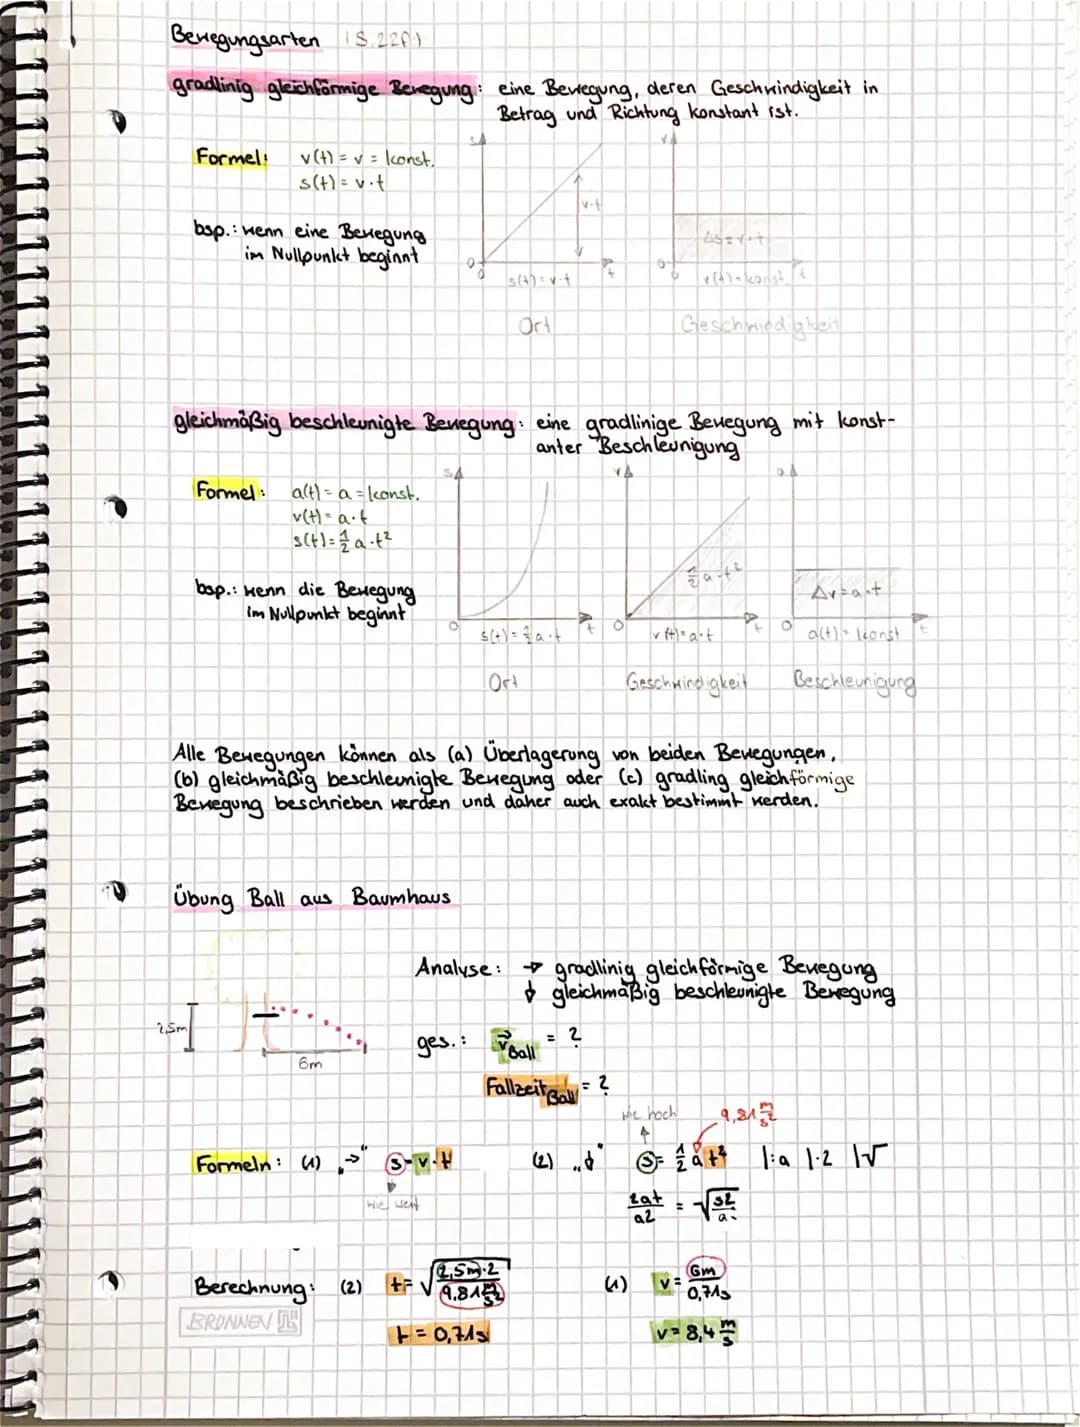 Bewegungsarten (S.22f)
gradlinig gleichförmige Bewegung: eine Bewegung, deren Geschwindigkeit in
Betrag und Richtung konstant ist.
Formel: v(t) = v = konst.
s(t) = v·t
bsp.: wenn eine Bewegung
im Nullpunkt beginnt
s
v·t
0
0
t
s(t) = v·t
Ort
v
Δs = v·t
0
0
t
v(t) = konst.
Geschwindigkeit
gleichmäßig beschleunigte Bewegung: eine gradlinige Bewegung mit konst-
anter Beschleunigung
Formel: a(t) = a = konst.
v(t) = a·t
s(t) = 1/2 a·t²
bsp.: wenn die Bewegung
im Nullpunkt beginnt
s
0
t
s(t) = 1/2 a·t
Ort
v
1/2 a·t²
0
t
v(t) = a·t
Geschwindigkeit
a
Δv = a·t
0
t
a(t) = konst
Beschleunigung
Alle Bewegungen können als (a) Überlagerung von beiden Bewegungen,
(b) gleichmäßig beschleunigte Bewegung oder (c) gradling gleichförmige
Bewegung beschrieben werden und daher auch exakt bestimmt werden.
Übung Ball aus Baumhaus
2,5m
6m
Analyse: → gradlinig gleichförmige Bewegung
↓ gleichmäßig beschleunigte Bewegung
ges.: v⃗Ball = ?
FallzeitBall = ?
wie hoch 9,81 m/s²
Formeln: (1) „→" s=v·t (2) „↓" s= 1/2 a t² |:a |·2 |√
wie weit
2at/a2 = √s2/a
Berechnung: (2) t= √(2,5m)·2/9,81 m/s² (1) v= 6m/0,71s
BRUNNEN
t = 0,71s v= 8,4 m/s